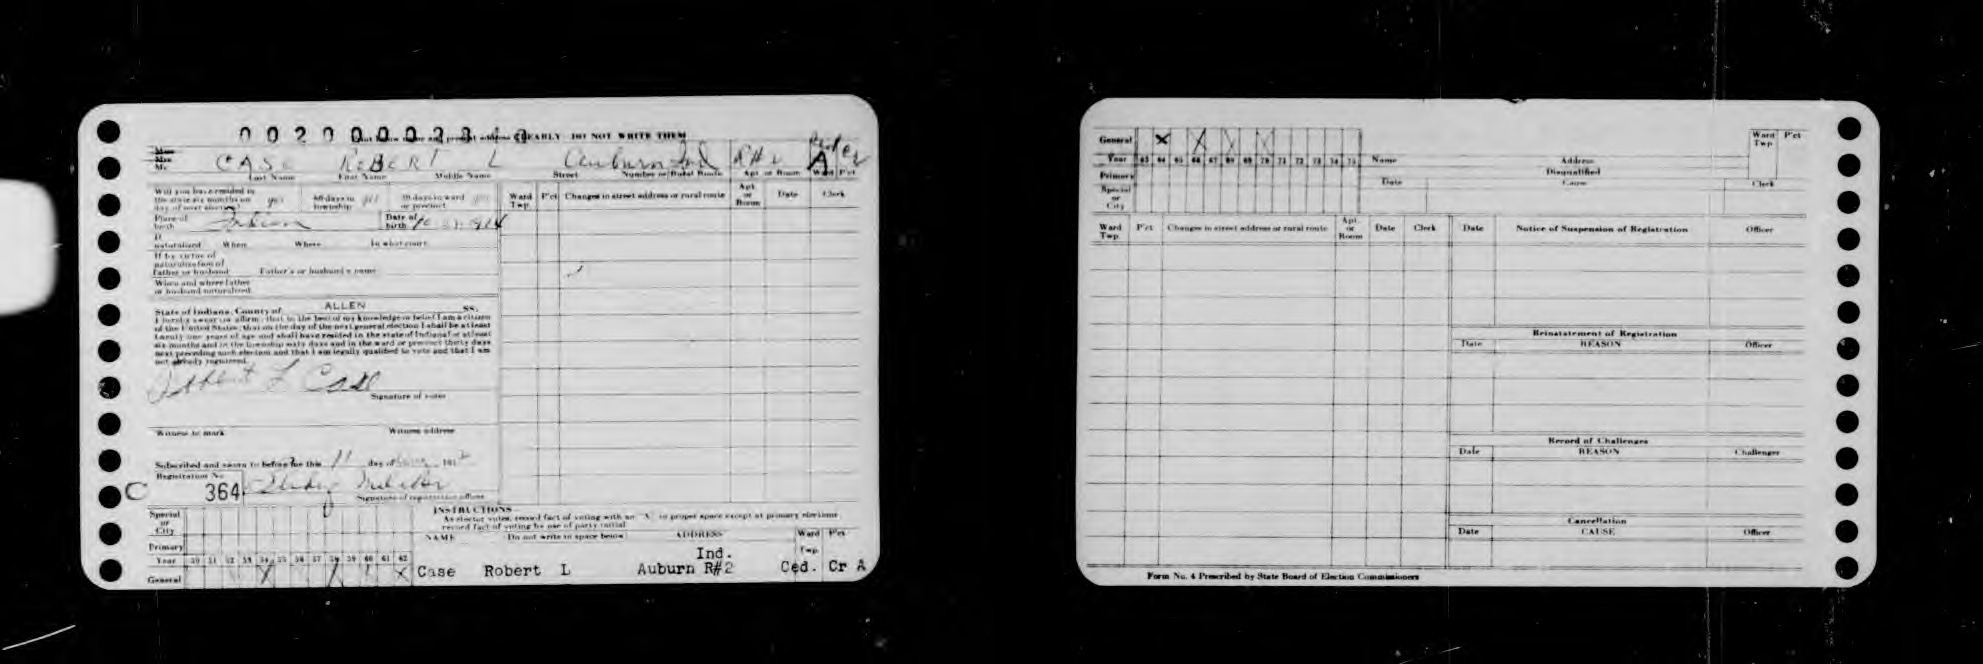 CLEARLY DO NOT WRITE THEM
Miss
Mrs
Mr.
CASE ROBERT L Auburn Ind R#2 A
Last Name First Name Middle Name Street Number or Rural Route Apt. or Room Ward P'ct
Will you have resided in the state six months on day of next election yes 60 days in township yes 30 days in ward or precinct yes
Place of birth Indiana Date of birth
If naturalized When Where In what court
If by virtue of naturalization of father or husband Father's or husband's name
When and where father or husband naturalized
Ward Twp. P'ct Changes in street address or rural route Apt. or Room Date Clerk
State of Indiana, County of ALLEN SS.
I hereby swear (or affirm) that to the best of my knowledge or belief I am a citizen
of the United States; that on the day of the next general election I shall be at least
twenty one years of age and shall have resided in the state of Indiana for at least
six months and in the township sixty days and in the ward or precinct thirty days
next preceding such election and that I am legally qualified to vote and that I am
not already registered.
Robert L Case
Signature of voter
Witness to mark Witness address
Subscribed and sworn to before me this 11 day of
Registration No.
C 364
Signature of registration officer
INSTRUCTIONS
As elector votes, record fact of voting with an "X" in proper space except at primary elections
record fact of voting by use of party initial
Special or City
Primary
Year 50 51 52 53 54 55 56 57 58 59 60 61 62
General
NAME Do not write in space below ADDRESS Ward Twp. P'ct
Case Robert L Auburn R#2 Ind. Ced. Cr A
General
Year 63 64 65 66 67 68 69 70 71 72 73 74 75
Primary
Special or City
Name Address Ward Twp P'ct
Disqualified
Date Cause Clerk
Ward Twp. P'ct Changes in street address or rural route Apt. or Room Date Clerk Date Notice of Suspension of Registration Officer
Reinstatement of Registration
Date REASON Officer
Record of Challenges
Date REASON Challenger
Cancellation
Date CAUSE Officer
Form No. 4 Prescribed by State Board of Election Commissioners